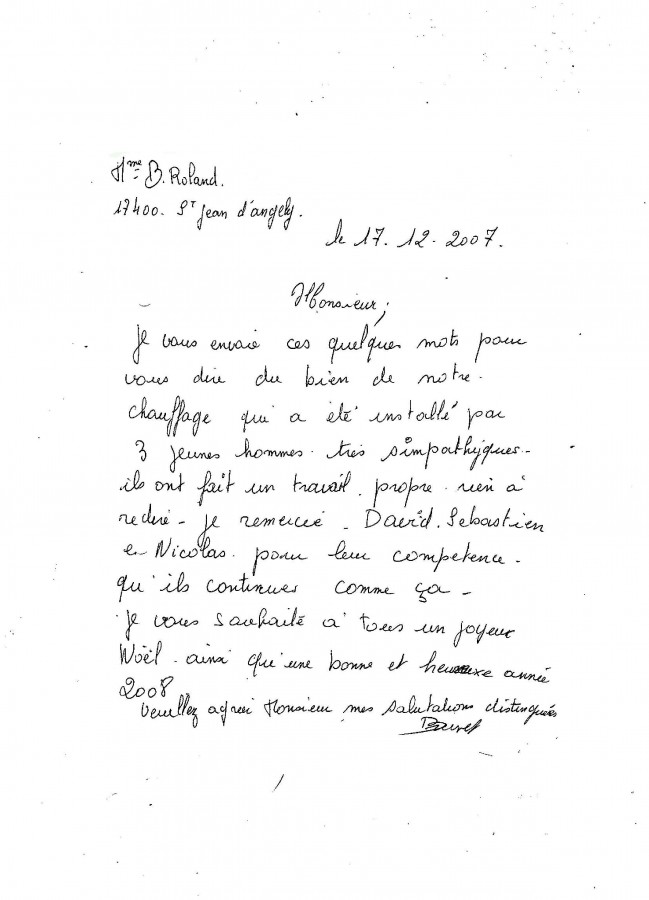 Mme B. Roland.
17400. St Jean d'angely.
le 17. 12. 2007.
Monsieur,
Je vous envoie ces quelques mots pour
vous dire du bien de notre.
chauffage qui a été installé par
3 jeunes hommes. très simpathyques-
ils ont fait un travail. propre. rien a'
redire - je remercie. David. Sebastien
e Nicolas. pour leur competence.
qu'ils continues comme ça -
je vous souhaite a' tous un joyeux
Noël. ainsi qu'une bonne et heureuxe année
2008
Veuillez agreer Monsieur mes salutations distinguées